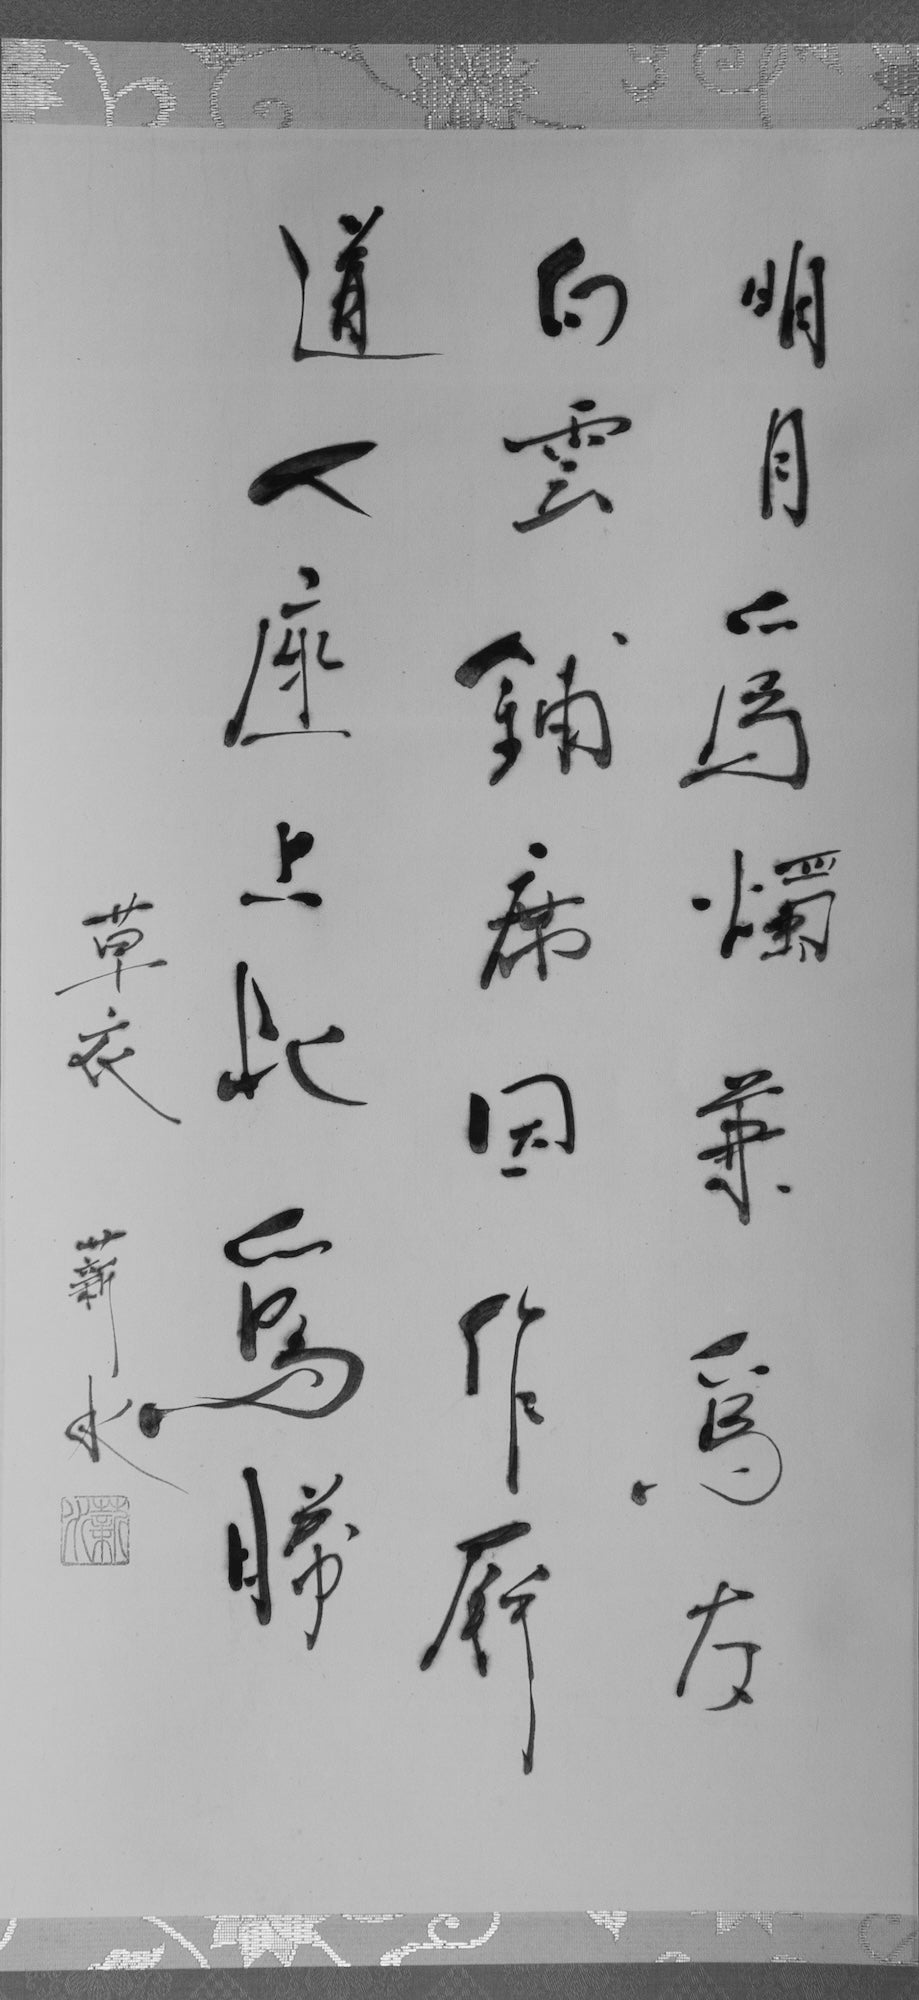 明月爲燭兼爲友
白雲鋪席因作屛
道人座上此爲勝
草衣 蘄水
蘄水